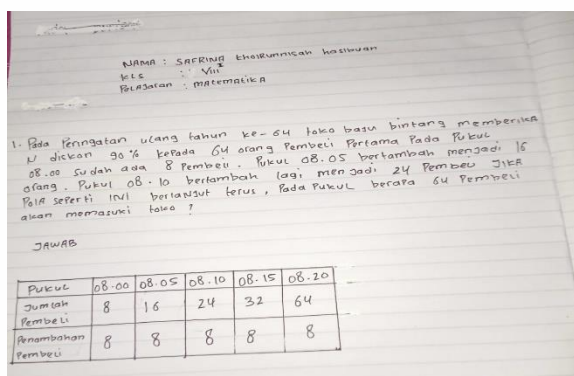 NAMA : SAFRINA khoiRunnisah hasibuan
kLS : VIII
PeLAJaran : MAtematikA
1. Pada Peringatan ulang tahun ke-64 toko baju bintang memberika
N diskon 90% kepada 64 orang Pembeli Pertama Pada Pukul
08.00 Sudah ada 8 Pembeli. Pukul 08.05 bertambah menjadi 16
orang. Pukul 08.10 bertambah lagi menjadi 24 Pembeli JIKA
PolA seperti INI berlanjut terus, Pada Pukul berapa 64 Pembeli
akan memasuki toko ?
JAWAB
Pukul 08.00 08.05 08.10 08.15 08.20
Jumlah Pembeli 8 16 24 32 64
Penambahan Pembeli 8 8 8 8 8